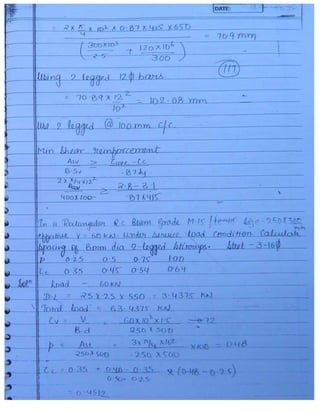 DATE:
= 2 x π/4 x 10² x 0.87 x 415 x 650 = 709 mm
( 300x10³/2.5 + 120x10⁶/300 )
(117)
Using 2 legged 12ϕ bars
= 70.89 x 12²/10² = 102.08 mm
Use 2 legged @ 100 mm c/c.
Min Shear reinforcement
Asv/B.Sv ≥ -Cc/.87fy
2 x π/4 x 12²/400x100 ≥ 2.8-2.1/.87x415
In a Rectangular R.c Beam Grade M-15 /
effective V = 60 KN Under Service load Condition Calculate
mm
Spacing of 8mm dia 2-legged stirrups. Steel - 3-16ϕ
P 0.25 0.5 0.75 1.00
Cc 0.35 0.45 0.54 0.64
Solⁿ Load - 60KN
D.L = .25 x 25 x 550 = 3.4375 KN
Total load = 63.4375 KN
Cv = V/B.d = 60x10³x1.5/250x500 = .72
P = Ast/250x500 = 3xπ/4 x16²/250 x 500 x 100 = 0.48
Cc = 0.35 + 0.45-0.35/0.50-0.25 x (0.48-0.25)
= 0.4512